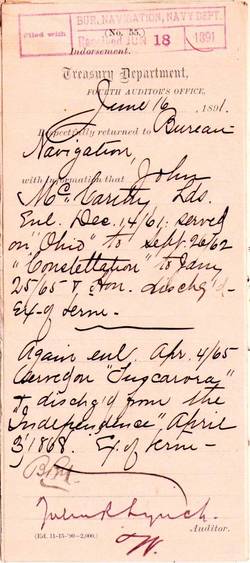 BUR. NAVIGATION, NAVY DEPT.
Filed with
(No. 55.)
Received JUN 18 1891
Indorsement.
Treasury Department,
FOURTH AUDITOR'S OFFICE,
June 16, 1891.
Respectfully returned to Bureau
Navigation,
with information that John
McVarity Lds.
Enl. Dec. 14/61: served
on "Ohio" to Sept. 26/62
"Constellation" to Jany
25/65 & Hon. dischg'd-
Ex. of term-
Again enl. Apr. 4/65
served on "Tuscarora"
& dischg'd from the
"Independence", April
3/1868. Ex. of term-
John R Lynch.
Auditor.
(Ed. 11-15-'90-2,000.)